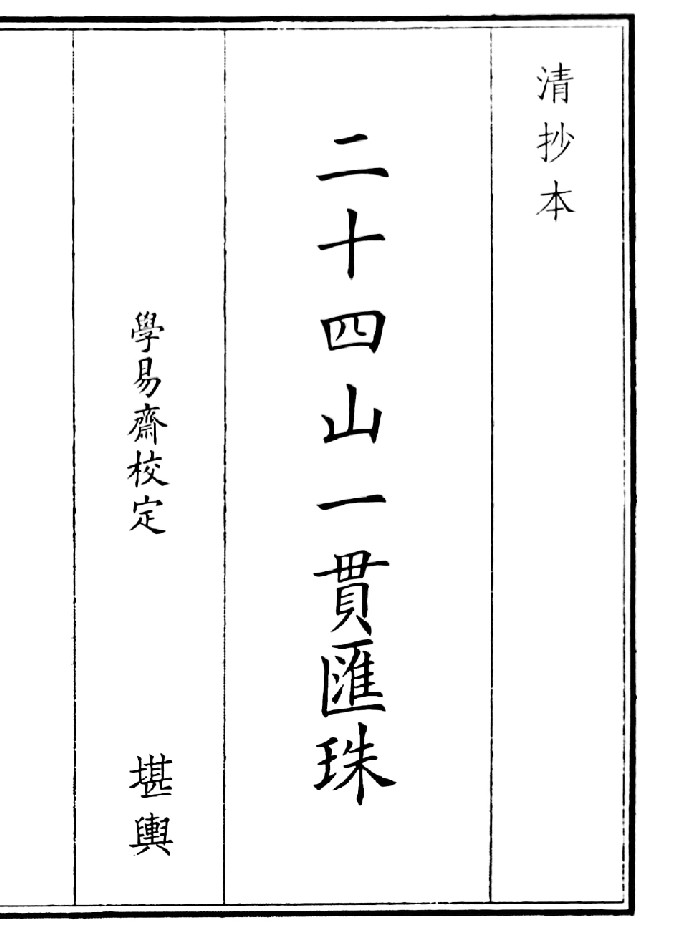 清抄本
二十四山一貫匯珠
學易齋校定
堪輿